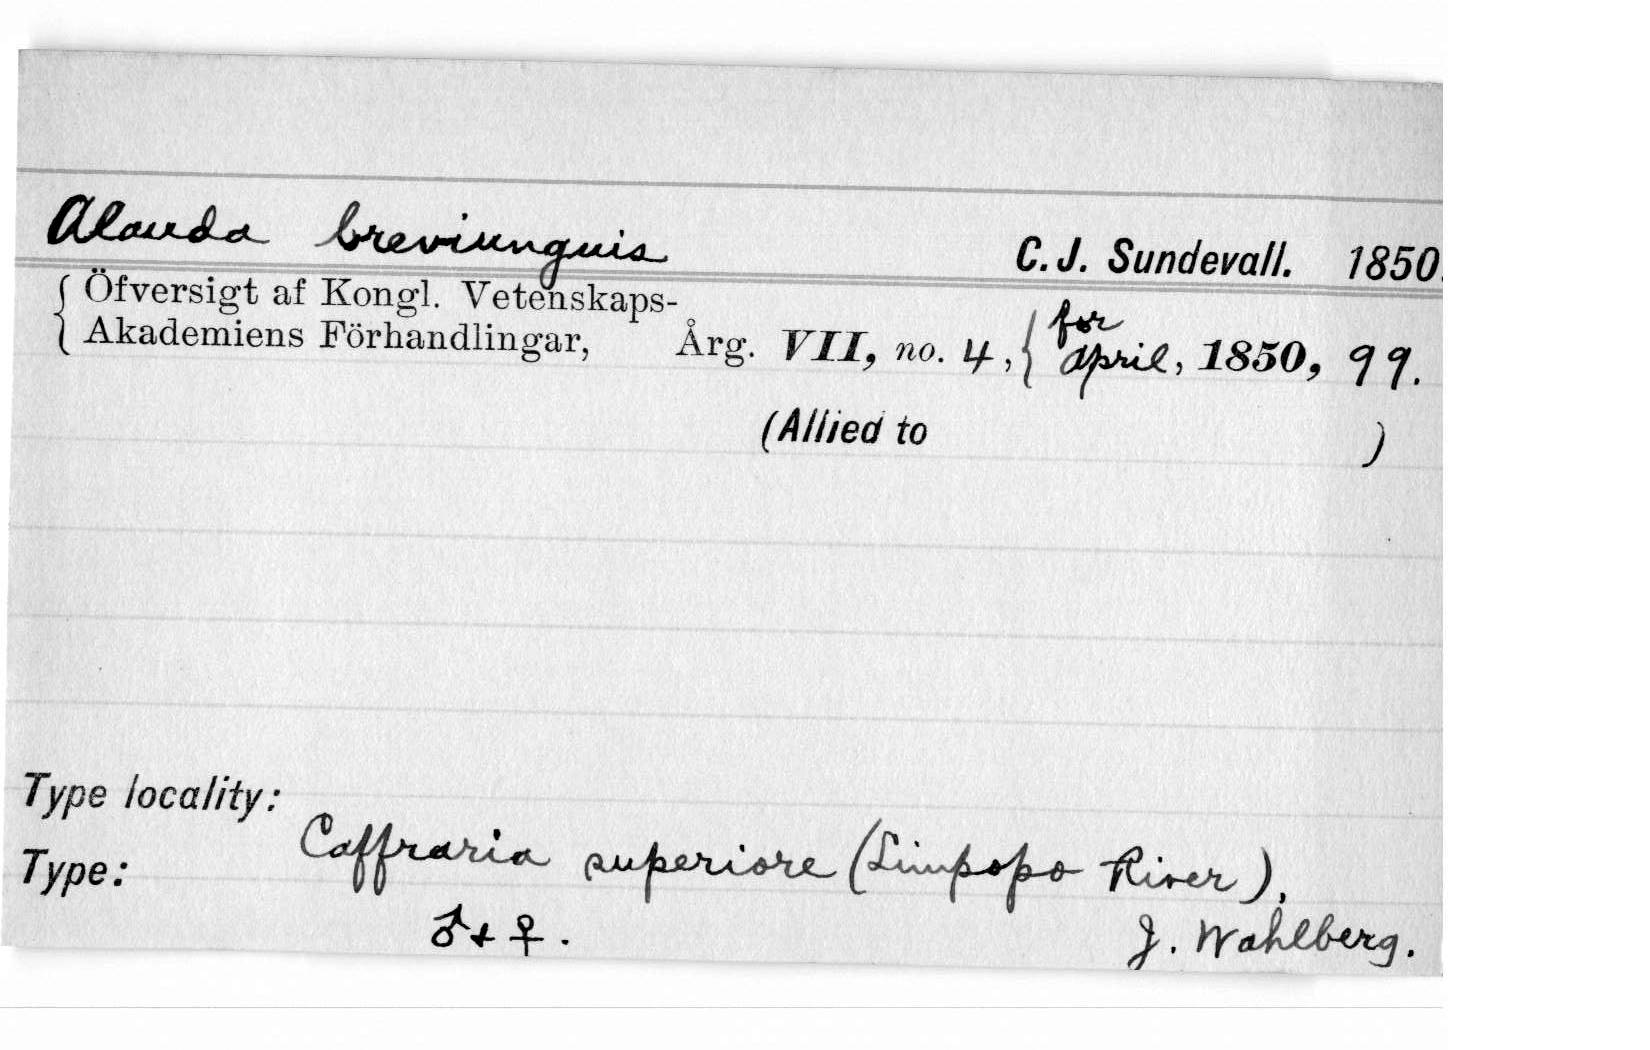 Alauda breviunguis C. J. Sundevall. 1850.
{ Öfversigt af Kongl. Vetenskaps-
{ Akademiens Förhandlingar, Årg. VII, no. 4, { for April, 1850, 99.
(Allied to )
Type locality:
Caffraria superiore (Limpopo River),
Type:
♂ + ♀. J. Wahlberg.